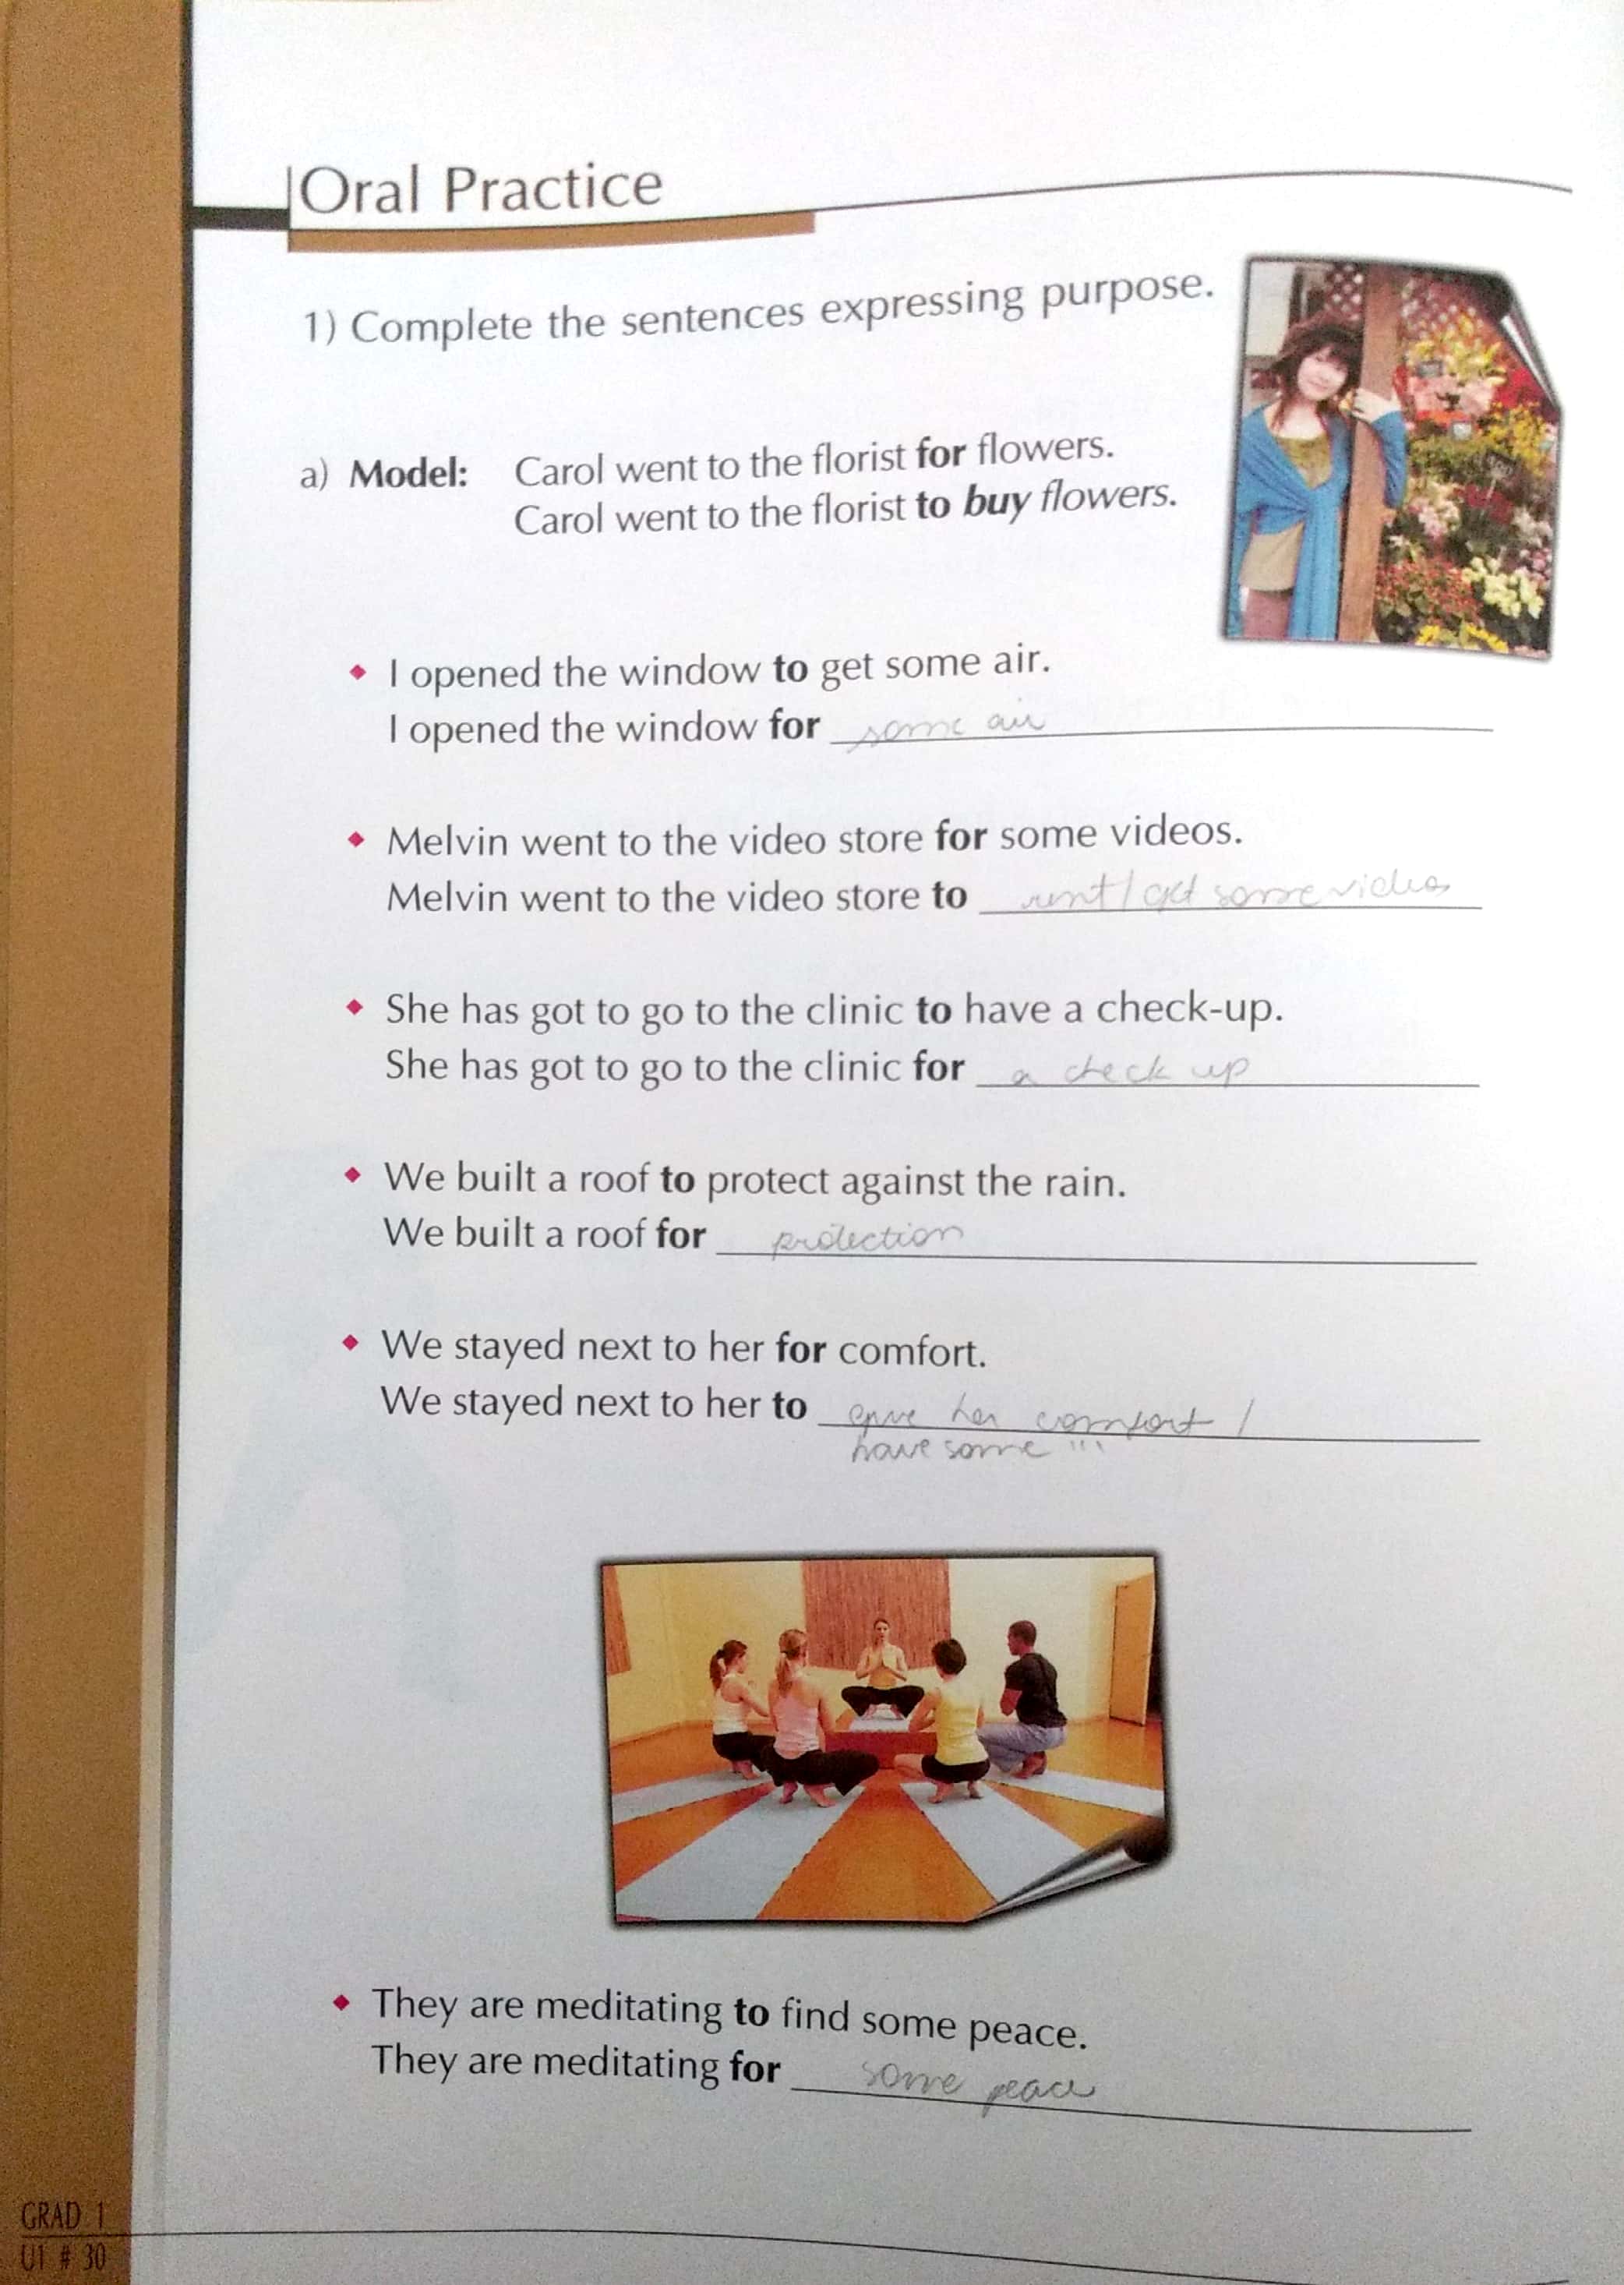 Oral Practice
1) Complete the sentences expressing purpose.
a) Model: Carol went to the florist for flowers.
Carol went to the florist to buy flowers.
◆ I opened the window to get some air.
I opened the window for some air
◆ Melvin went to the video store for some videos.
Melvin went to the video store to rent / get some videos
◆ She has got to go to the clinic to have a check-up.
She has got to go to the clinic for a check up
◆ We built a roof to protect against the rain.
We built a roof for protection
◆ We stayed next to her for comfort.
We stayed next to her to give her comfort /
have some '''
◆ They are meditating to find some peace.
They are meditating for some peace
GRAD 1
U1 # 30